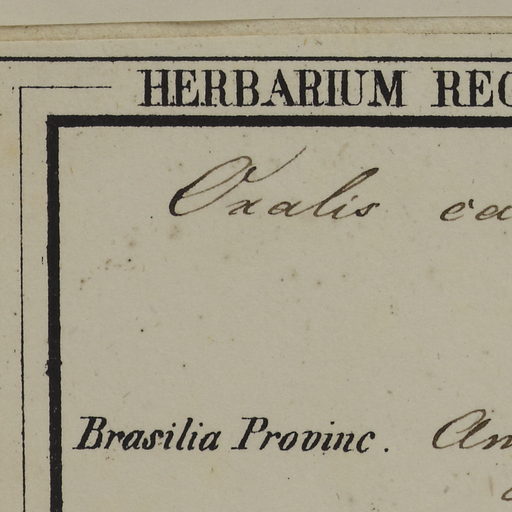 HERBARIUM REG
Oxalis ca
Brasilia Provinc. Am